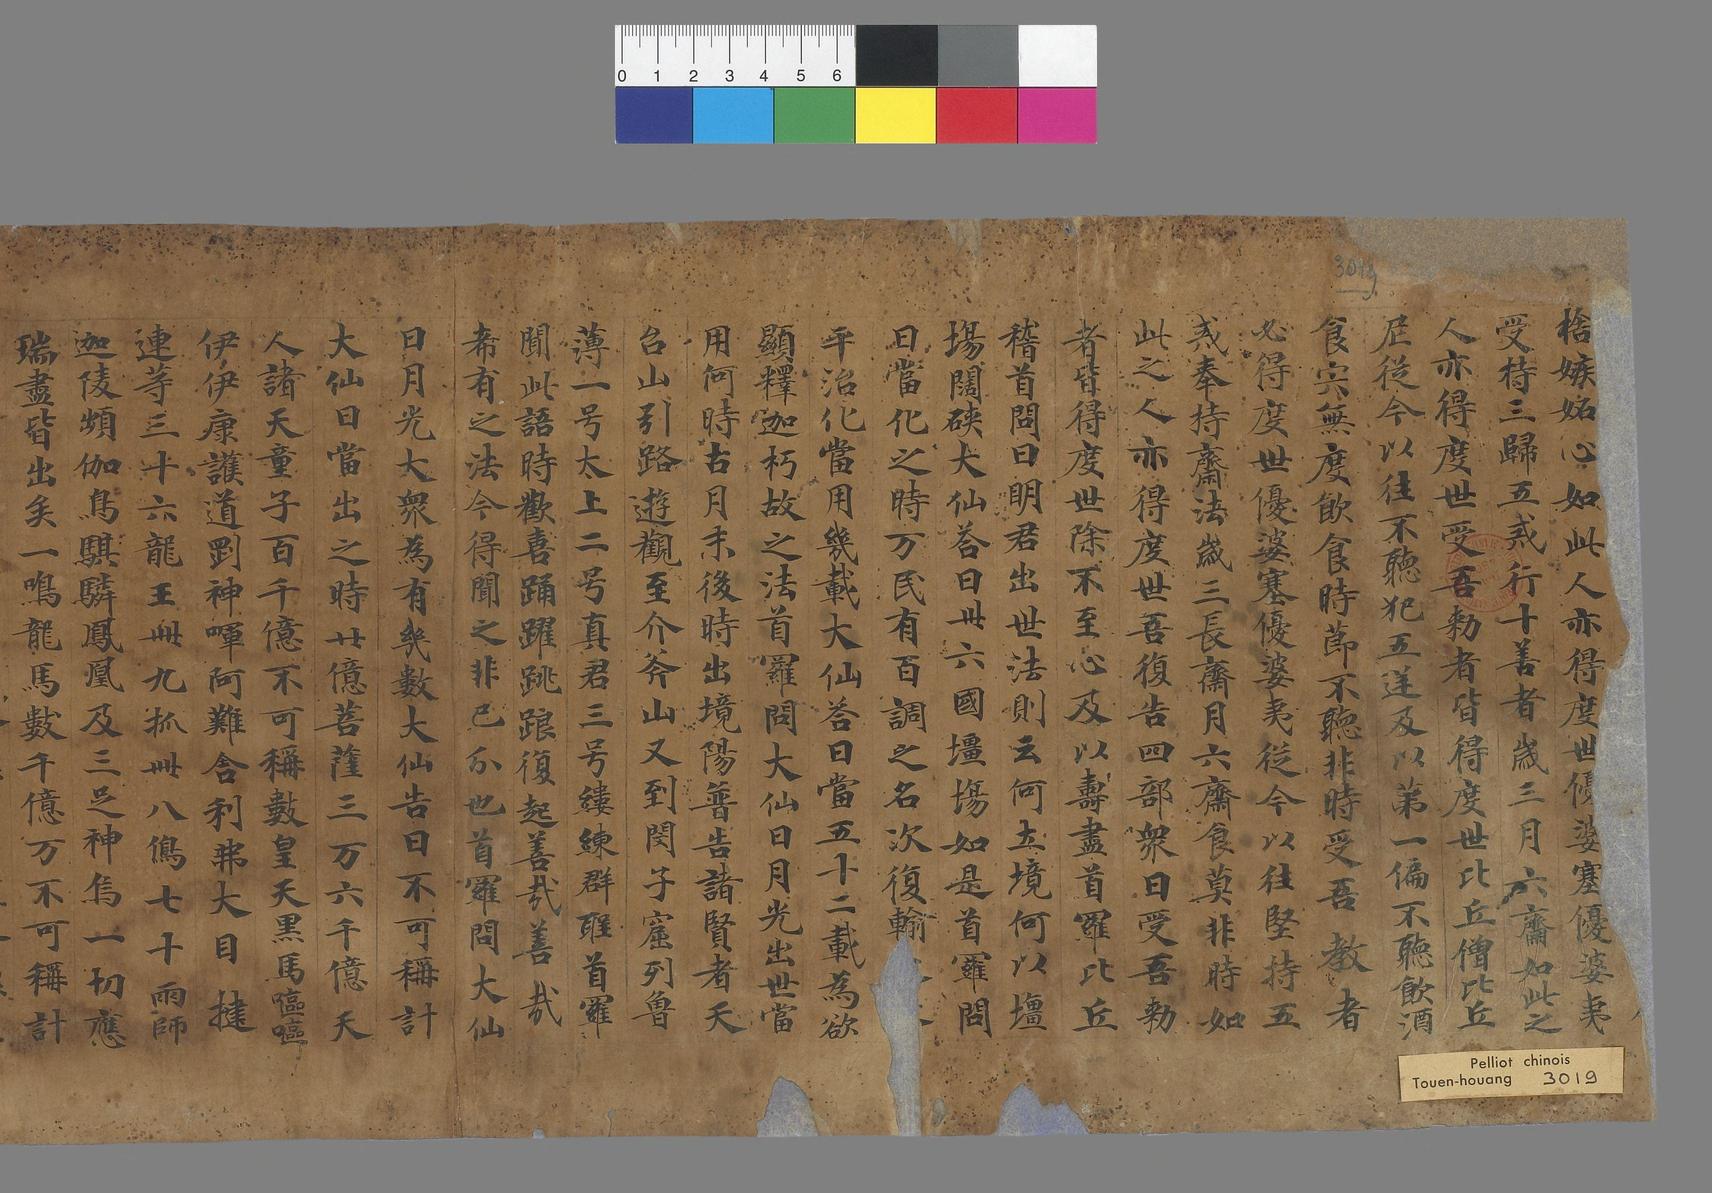 捨嫉妬心如此人亦得度世優婆塞優婆夷
受持三歸五戒行十善者歲三月六齋如此之
人亦得度世受吾勅者皆得度世比丘僧比丘
尼從今以往不聽犯五逆及以第一偏不聽飲酒
食宍無度飲食時莭不聽非時受吾 教者
必得度世優婆塞優婆夷從今以往堅持五
戒奉持齋法歲三長齋月六齋食莫非時如
此之人亦得度世吾復告四部衆曰受吾勅
者皆得度世除不至心及以壽盡首羅比丘
稽首問曰明君出世法則云何立境何以壃
塲闊硤大仙荅曰丗六國壃塲如是首羅問
曰當化之時万民有百調之名次復輸
平治化當用幾載大仙荅曰當五十二載為欲
顯釋迦朽故之法首羅問大仙曰月光出世當
用何時古月末後時出境陽普告諸賢者天
台山引路遊觀至介斧山又到閔子窟列魯
薄一号太上二号真君三号縷練群聀首羅
聞此語時歡喜踊躍跳踉復起善哉善哉
希有之法今得聞之非己尒也首羅問大仙
日月光大衆為有幾數大仙告曰不可稱計
大仙曰當出之時廿億菩薩三万六千億天
人諸天童子百千億不可稱數皇天黑馬嘔嘔
伊伊康護道罰神嘽阿難舍利弗大目 揵
連等三十六龍王卌九抓卌八鳻七十雨師
迦陵頻伽鳥騏驎鳳凰及三足神烏一切應
瑞盡皆出矣一鳴龍馬數千億万不可稱計
3019
Pelliot chinois
Touen-houang 3019
0 1 2 3 4 5 6